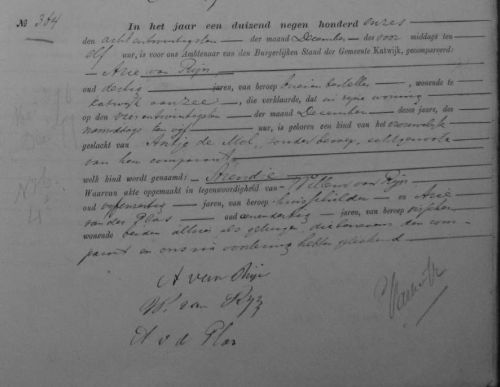 No 364 In het jaar een duizend negen honderd
den achtentwintigsten der maand December des voor middags ten
elf uur, is voor ons Ambtenaar van den Burgerlijken Stand der Gemeente Katwijk, gecompareerd:
Arie van Rijn
oud dertig jaren, van beroep wonende te
Katwijk aan Zee, die verklaarde, dat in zijne woning
op den der maand December dezes jaars, des
namiddags ten vijf uur, is geboren een kind van het vrouwelijk
geslacht van de Mol, zonder beroep, echtgenoote
van hem comparant
welk kind wordt genaamd:
Waarvan akte opgemaakt in tegenwoordigheid van Willem van Rijn
oud jaren, van beroep huisschilder en Arie
van der Plas oud jaren, van beroep visscher
wonende beiden alhier als getuigen, die benevens den com-
parant en ons na voorlezing hebben geteekend
A van Rijn
W. van Rijn
A v d Plas